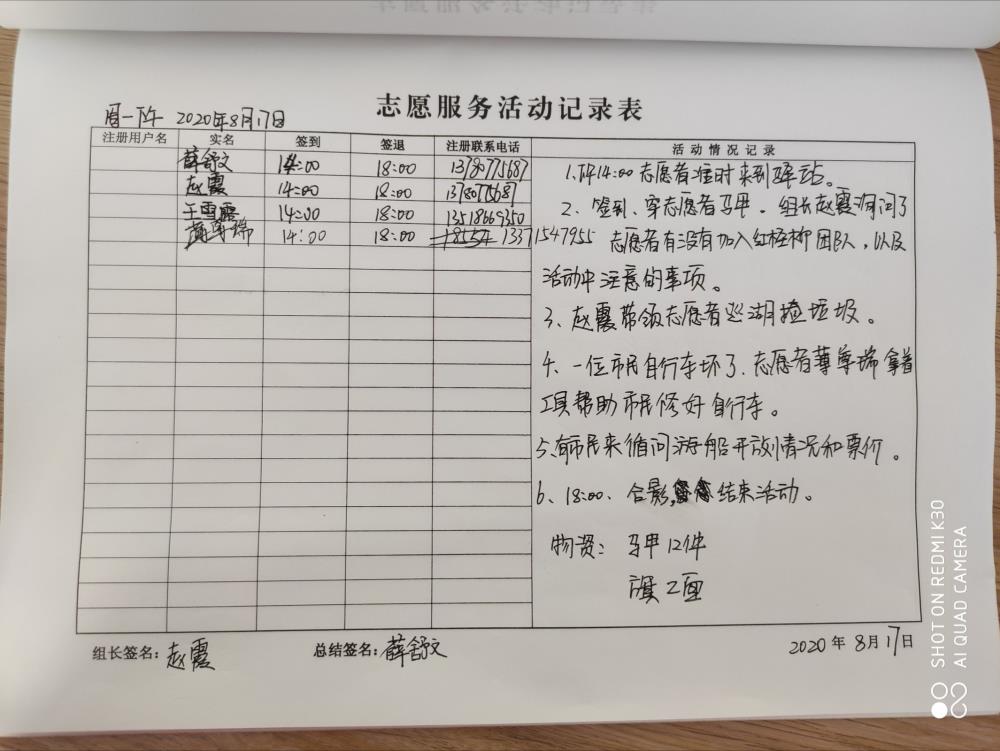 志愿服务活动记录表
周一下午 2020年8月17日
注册用户名 实名 签到 签退 注册联系电话 活动情况记录
薛舒文 14:00 18:00 13780775687
赵霞 14:00 18:00 1378075687
王雪露 14:00 18:00 13518669350
14:00 18:00 18554 13371547955
1、下午14:00志愿者准时来到驿站。
2、签到、穿志愿者马甲。组长赵霞询问了
志愿者有没有加入红柽柳团队,以及
活动中注意的事项。
3、赵霞带领志愿者巡湖捡垃圾。
4、一位市民自行车坏了、志愿者拿着
工具帮助市民修好自行车。
5、有市民来循问游船开放情况和票价。
6、18:00、合影,结束活动。
物资:马甲12件
旗2面
组长签名:赵霞 总结签名:薛舒文 2020年8月17日
SHOT ON REDMI K30
AI QUAD CAMERA